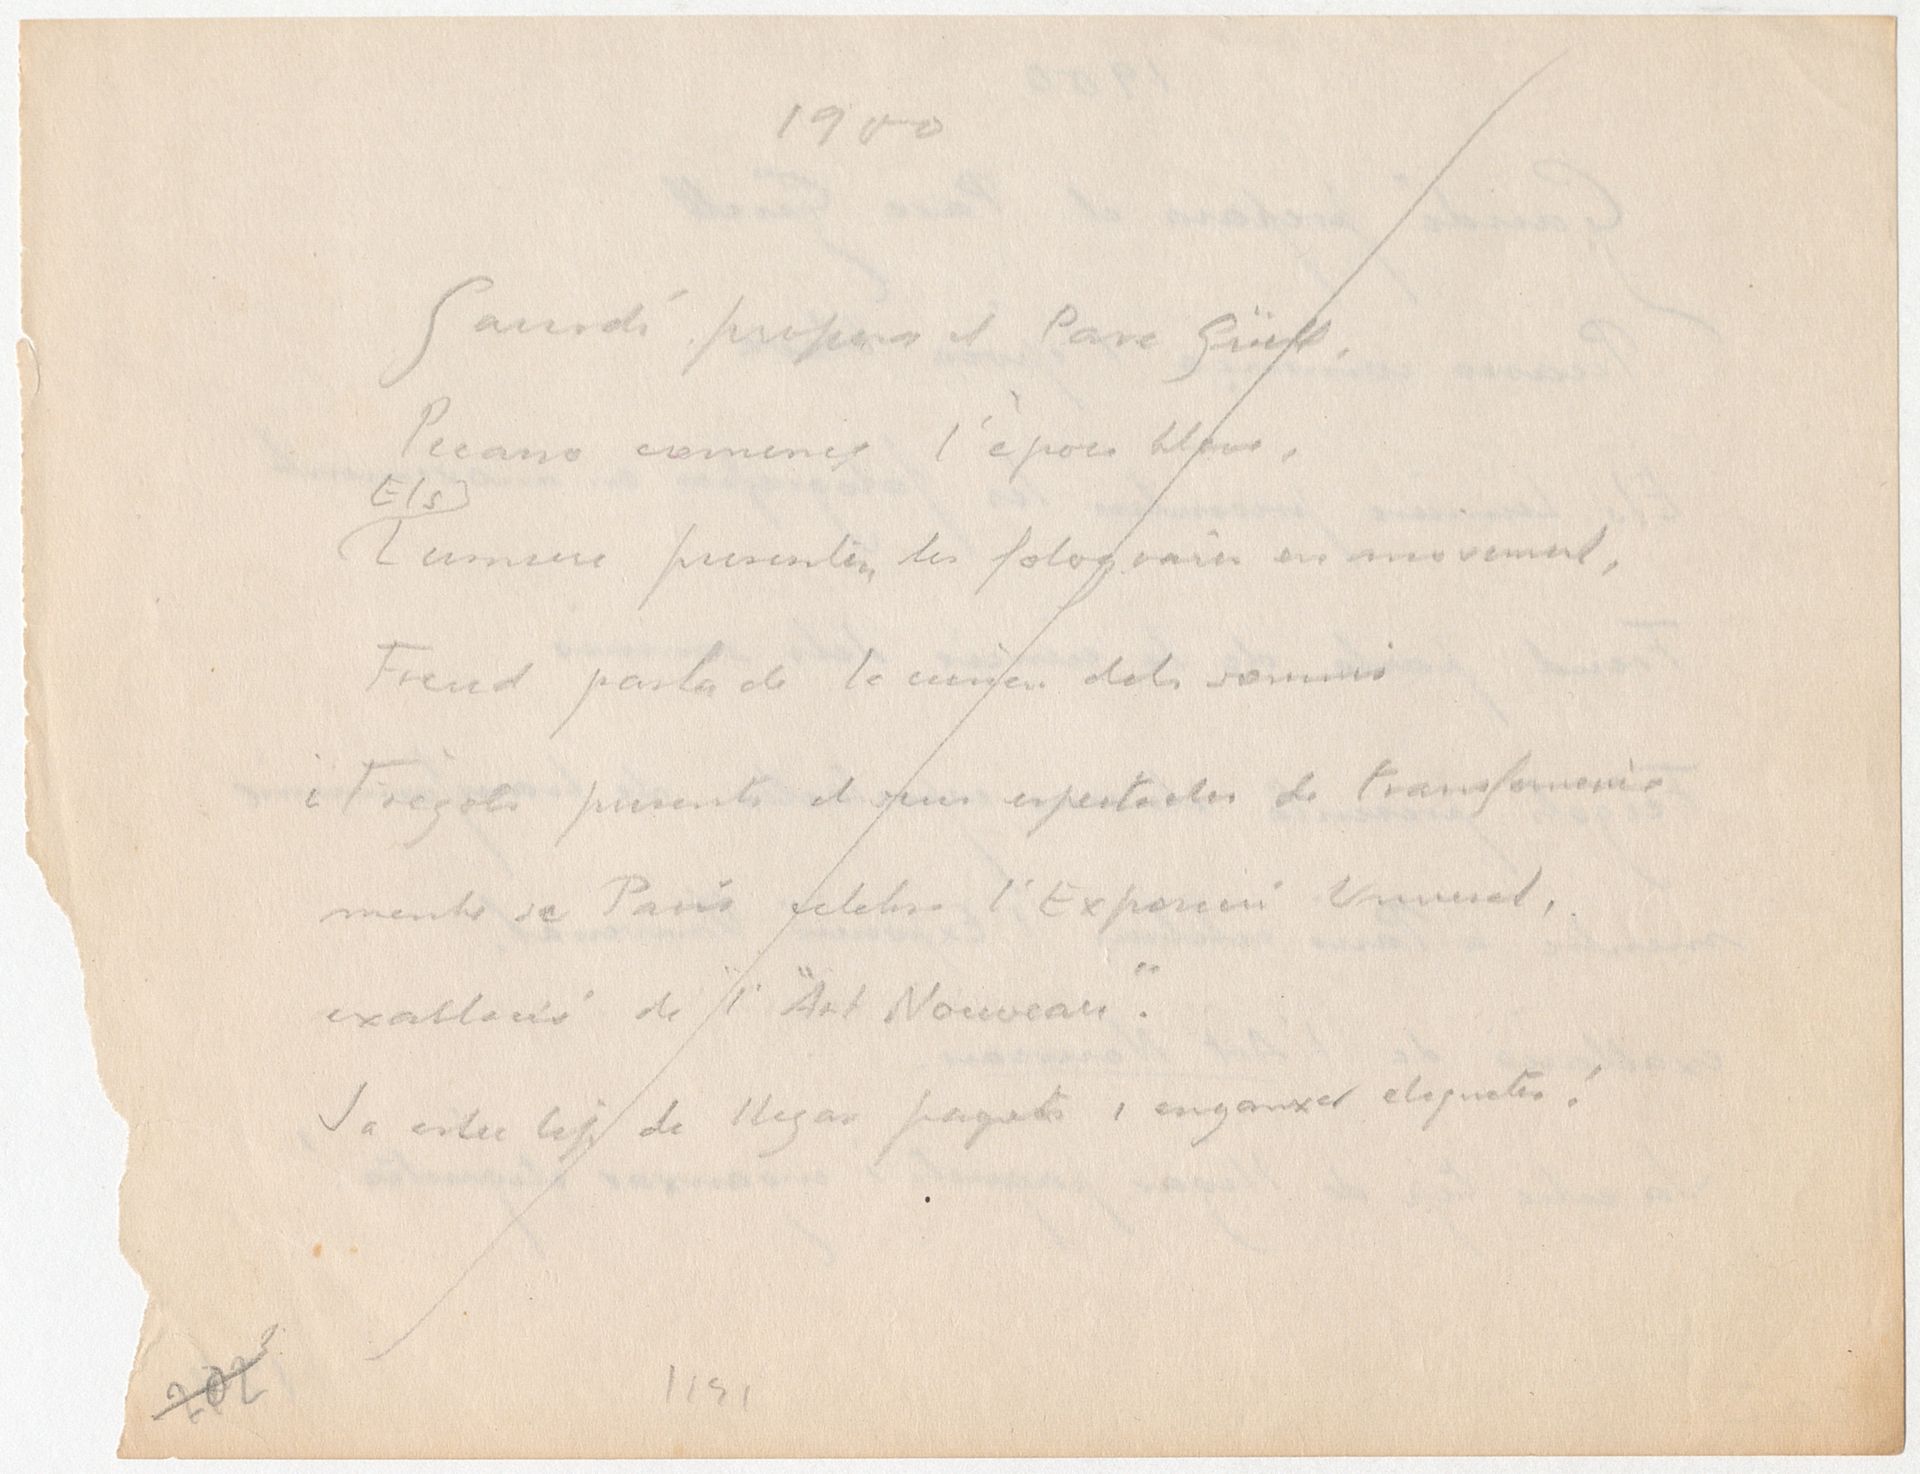 1900
Gaudí propera el Parc Güell,
Picasso comença l'època blava,
Els
Lumiere presenten les fotografies en moviment,
Freud parla de la ciència dels somnis
i Frègoli presenta el seu espectacle de transforma-
ments i a París celebra l'Exposició Universal,
exaltació de l'"Art Nouveau".
Ja estic tip de lligar paquets i enganxar etiquetes!
202